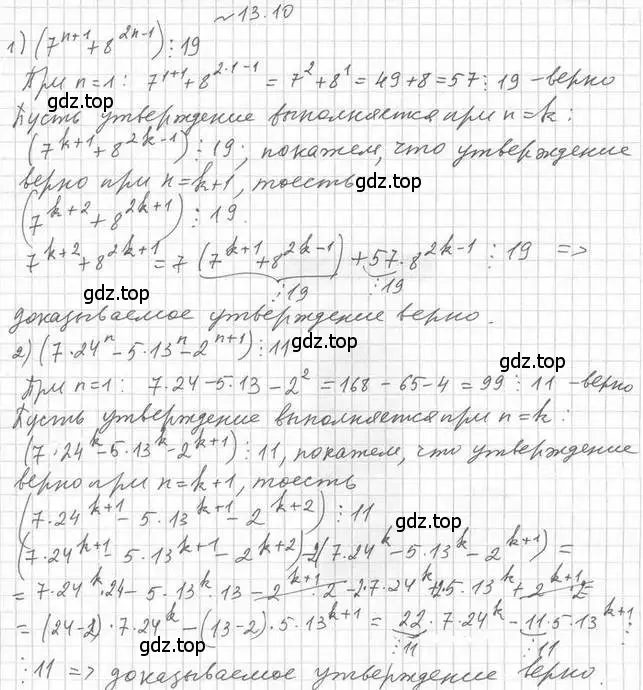 № 13.10
1) (7^{n+1} + 8^{2n-1}) ⋮ 19
При n=1: 7^{1+1} + 8^{2·1-1} = 7^2 + 8^1 = 49+8 = 57 ⋮ 19 – верно
gdz.top
Пусть утверждение выполняется при n=k:
(7^{k+1} + 8^{2k-1}) ⋮ 19, покажем, что утверждение
gdz.top
верно при n=k+1, тоесть
gdz.top
(7^{k+2} + 8^{2k+1}) ⋮ 19.
7^{k+2} + 8^{2k+1} = 7 (7^{k+1} + 8^{2k-1}) + 57·8^{2k-1} ⋮ 19 =>
⋮19 ⋮19
gdz.top
доказываемое утверждение верно.
2) (7·24^n - 5·13^n - 2^{n+1}) ⋮ 11
gdz.top
При n=1: 7·24 - 5·13 - 2^2 = 168 - 65 - 4 = 99 ⋮ 11 – верно
Пусть утверждение выполняется при n=k:
gdz.top
(7·24^k - 5·13^k - 2^{k+1}) ⋮ 11, покажем, что утверждение
верно при n=k+1, тоесть
(7·24^{k+1} - 5·13^{k+1} - 2^{k+2}) ⋮ 11
gdz.top
(7·24^{k+1} - 5·13^{k+1} - 2^{k+2}) - 2(7·24^k - 5·13^k - 2^{k+1}) =
= 7·24^k·24 - 5·13^k·13 - 2^{k+1}·2 - 2·7·24^k + 2·5·13^k + 2^{k+1}·2
= (24-2)·7·24^k - (13-2)·5·13^{k+1} = 22·7·24^k - 11·5·13^{k+1} ⋮
⋮11 ⋮11
gdz.top
⋮ 11 => доказываемое утверждение верно.